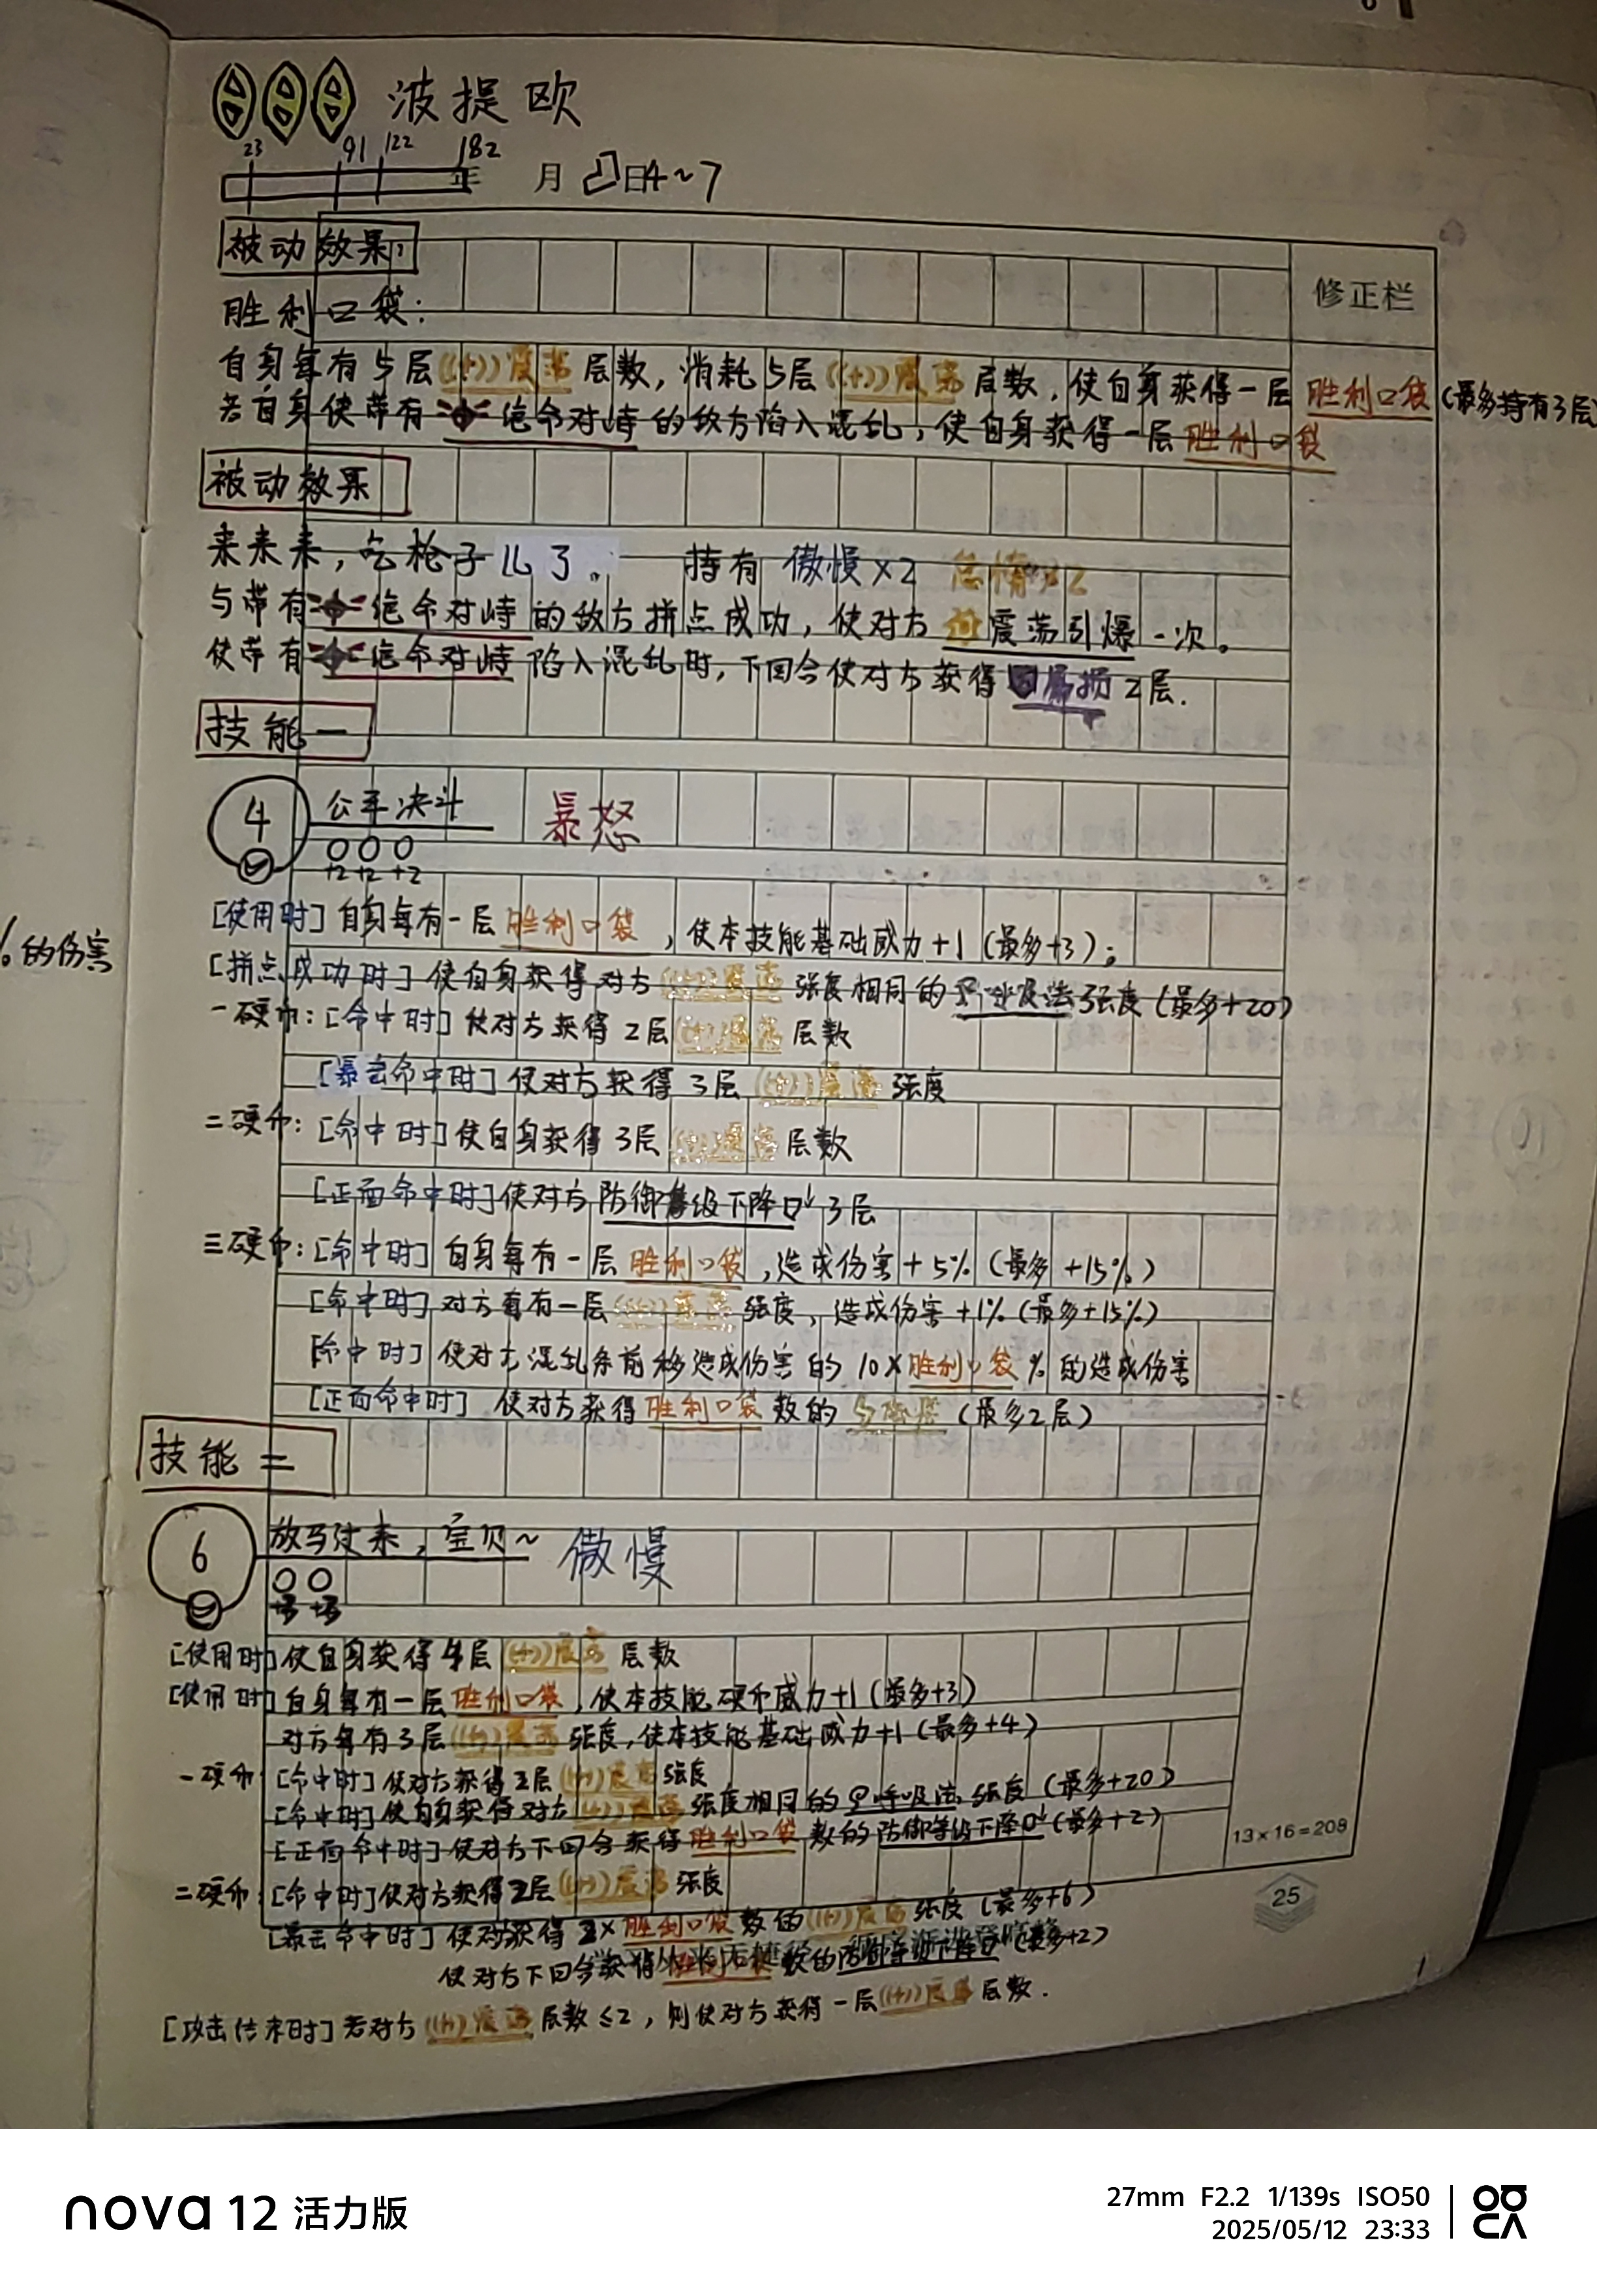 波提欧
23 91 122 182
年 月 日4~7
被动效果:
修正栏
胜利口袋:
自身每有5层震荡层数,消耗5层震荡层数,使自身获得一层胜利口袋(最多持有3层)
若自身使带有绝命对峙的敌方陷入混乱,使自身获得一层胜利口袋
被动效果
来来来,吃枪子儿了。 持有 傲慢×2 怠惰×2
与带有绝命对峙的敌方拼点成功,使对方震荡引爆一次。
使带有绝命对峙陷入混乱时,下回合使对方获得 损2层.
技能一
4 公平决斗 暴怒
+2 +2 +2
[使用时]自身每有一层胜利口袋,使本技能基础威力+1(最多+3);
%的伤害
[拼点成功时]使自身获得对方震荡强度相同的呼吸法强度(最多+20)
一硬币:[命中时]使对方获得2层震荡层数
[暴击命中时]使对方获得3层震荡强度
二硬币:[命中时]使自身获得3层震荡层数
[正面命中时]使对方防御等级下降3层
三硬币:[命中时]自身每有一层胜利口袋,造成伤害+5%(最多+15%)
[命中时]对方每有一层震荡强度,造成伤害+1%(最多+15%)
[命中时]使对方混乱条前移造成伤害的10×胜利口袋%的造成伤害
[正面命中时]使对方获得胜利口袋数的 (最多2层)
技能二
6 放马过来,宝贝~ 傲慢
+3 +3
[使用时]使自身获得4层震荡层数
[使用时]自身每有一层胜利口袋,使本技能硬币威力+1(最多+3)
对方每有3层震荡强度,使本技能基础威力+1(最多+4)
一硬币:[命中时]使对方获得2层震荡强度
[命中时]使自身获得对方震荡强度相同的呼吸法强度(最多+20)
[正面命中时]使对方下回合获得胜利口袋数的防御等级下降(最多+2)
13×16=208
二硬币:[命中时]使对方获得2层震荡强度
25
[暴击命中时]使对获得2×胜利口袋数的震荡强度(最多+6)
使对方下回合获得胜利口袋数的防御等级下降(最多+2)
[攻击结束时]若对方震荡层数≤2,则使对方获得一层震荡层数.
nova 12 活力版
27mm F2.2 1/139s ISO50
2025/05/12 23:33